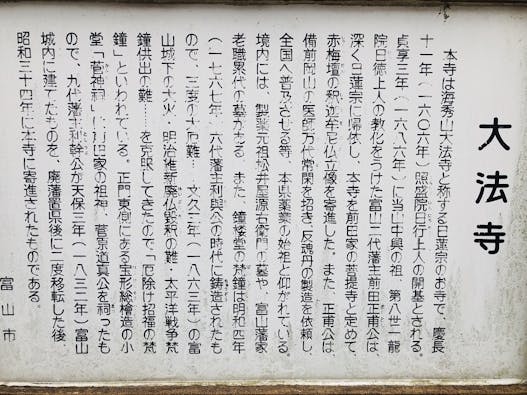 大法寺
本寺は海秀山大法寺と称する日蓮宗のお寺で、慶長
十一年(一六〇六年)照盛院日行上人の開基とされる。
貞享三年(一六八六年)に当山中興の祖、第八世一龍
院日徳上人の教化をうけた富山二代藩主前田正甫公は
深く日蓮宗に帰依し、本寺を前田家の菩提寺と定めて
赤梅壇の釈迦牟尼仏立像を寄進した。また、正甫公は
備前岡山の医師万代常閑を招き、反魂丹の製造を依頼し、
全国へ普及させる等、本県薬業の始祖と仰がれている。
境内には、製薬元祖松井屋源右衛門の墓や、富山藩家
老職累代の墓がある。また、鐘楼堂の梵鐘は明和四年
(一七六七年、六代藩主利與公の時代に鋳造されたも
ので、三度の大厄難…文久三年(一八六三年)の富
山城下の大火・明治維新廃仏毀釈の難・太平洋戦争梵
鐘供出の難…を克服してきたので「厄除け招福の梵
鐘」といわれている。正門東側にある宝形総檜造の小
堂「菅神祠」は前田家の祖神、菅京道真公を祠ったも
ので、九代藩主利幹公が天保三年(一八三二年)富山
城内に建てたものを、廃藩置県後に二度移転した後、
昭和三十四年に本寺に寄進されたものである。
富山市